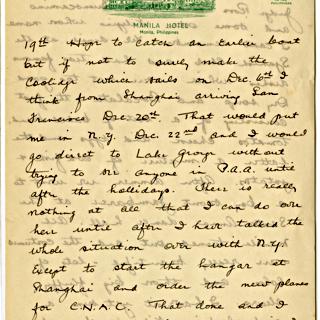 MANILA HOTEL
Manila, Philippines
PHILIPPINES
19th Hope to catch an earlier boat
but if not to surely make the
Coolidge which sails on Dec. 6th I
think from Shanghai arriving San
Francisco Dec. 20th. That would put
me in N.Y. Dec. 22nd and I would
go direct to Lake George without
trying to see anyone in P.A.A. until
after the hollidays. Ther is really
nothing at all that I can do over
her until after I have talked the
whole situation over with N.Y.
Except to start the hangar at
Shanghai and order the new planes
for C.N.A.C. That done and I